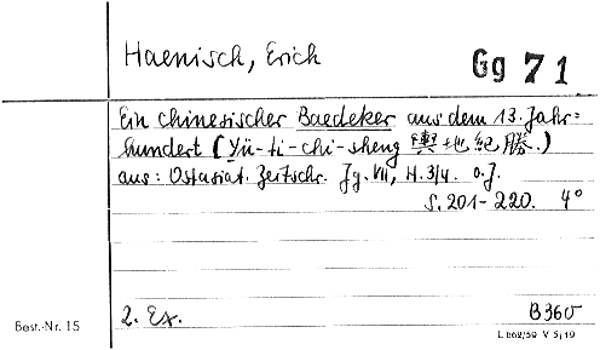 Haenisch, Erich
Gg 71
Ein chinesischer Baedeker aus dem 13. Jahr=
hundert (Yü-ti-chi-sheng 輿地紀勝.)
aus: Ostasiat. Zeitschr. Jg. VII, H. 3/4. o.J.
S. 201-220. 4°
2. Ex.
B 360
Best.-Nr. 15
L 862/59 V 5/19